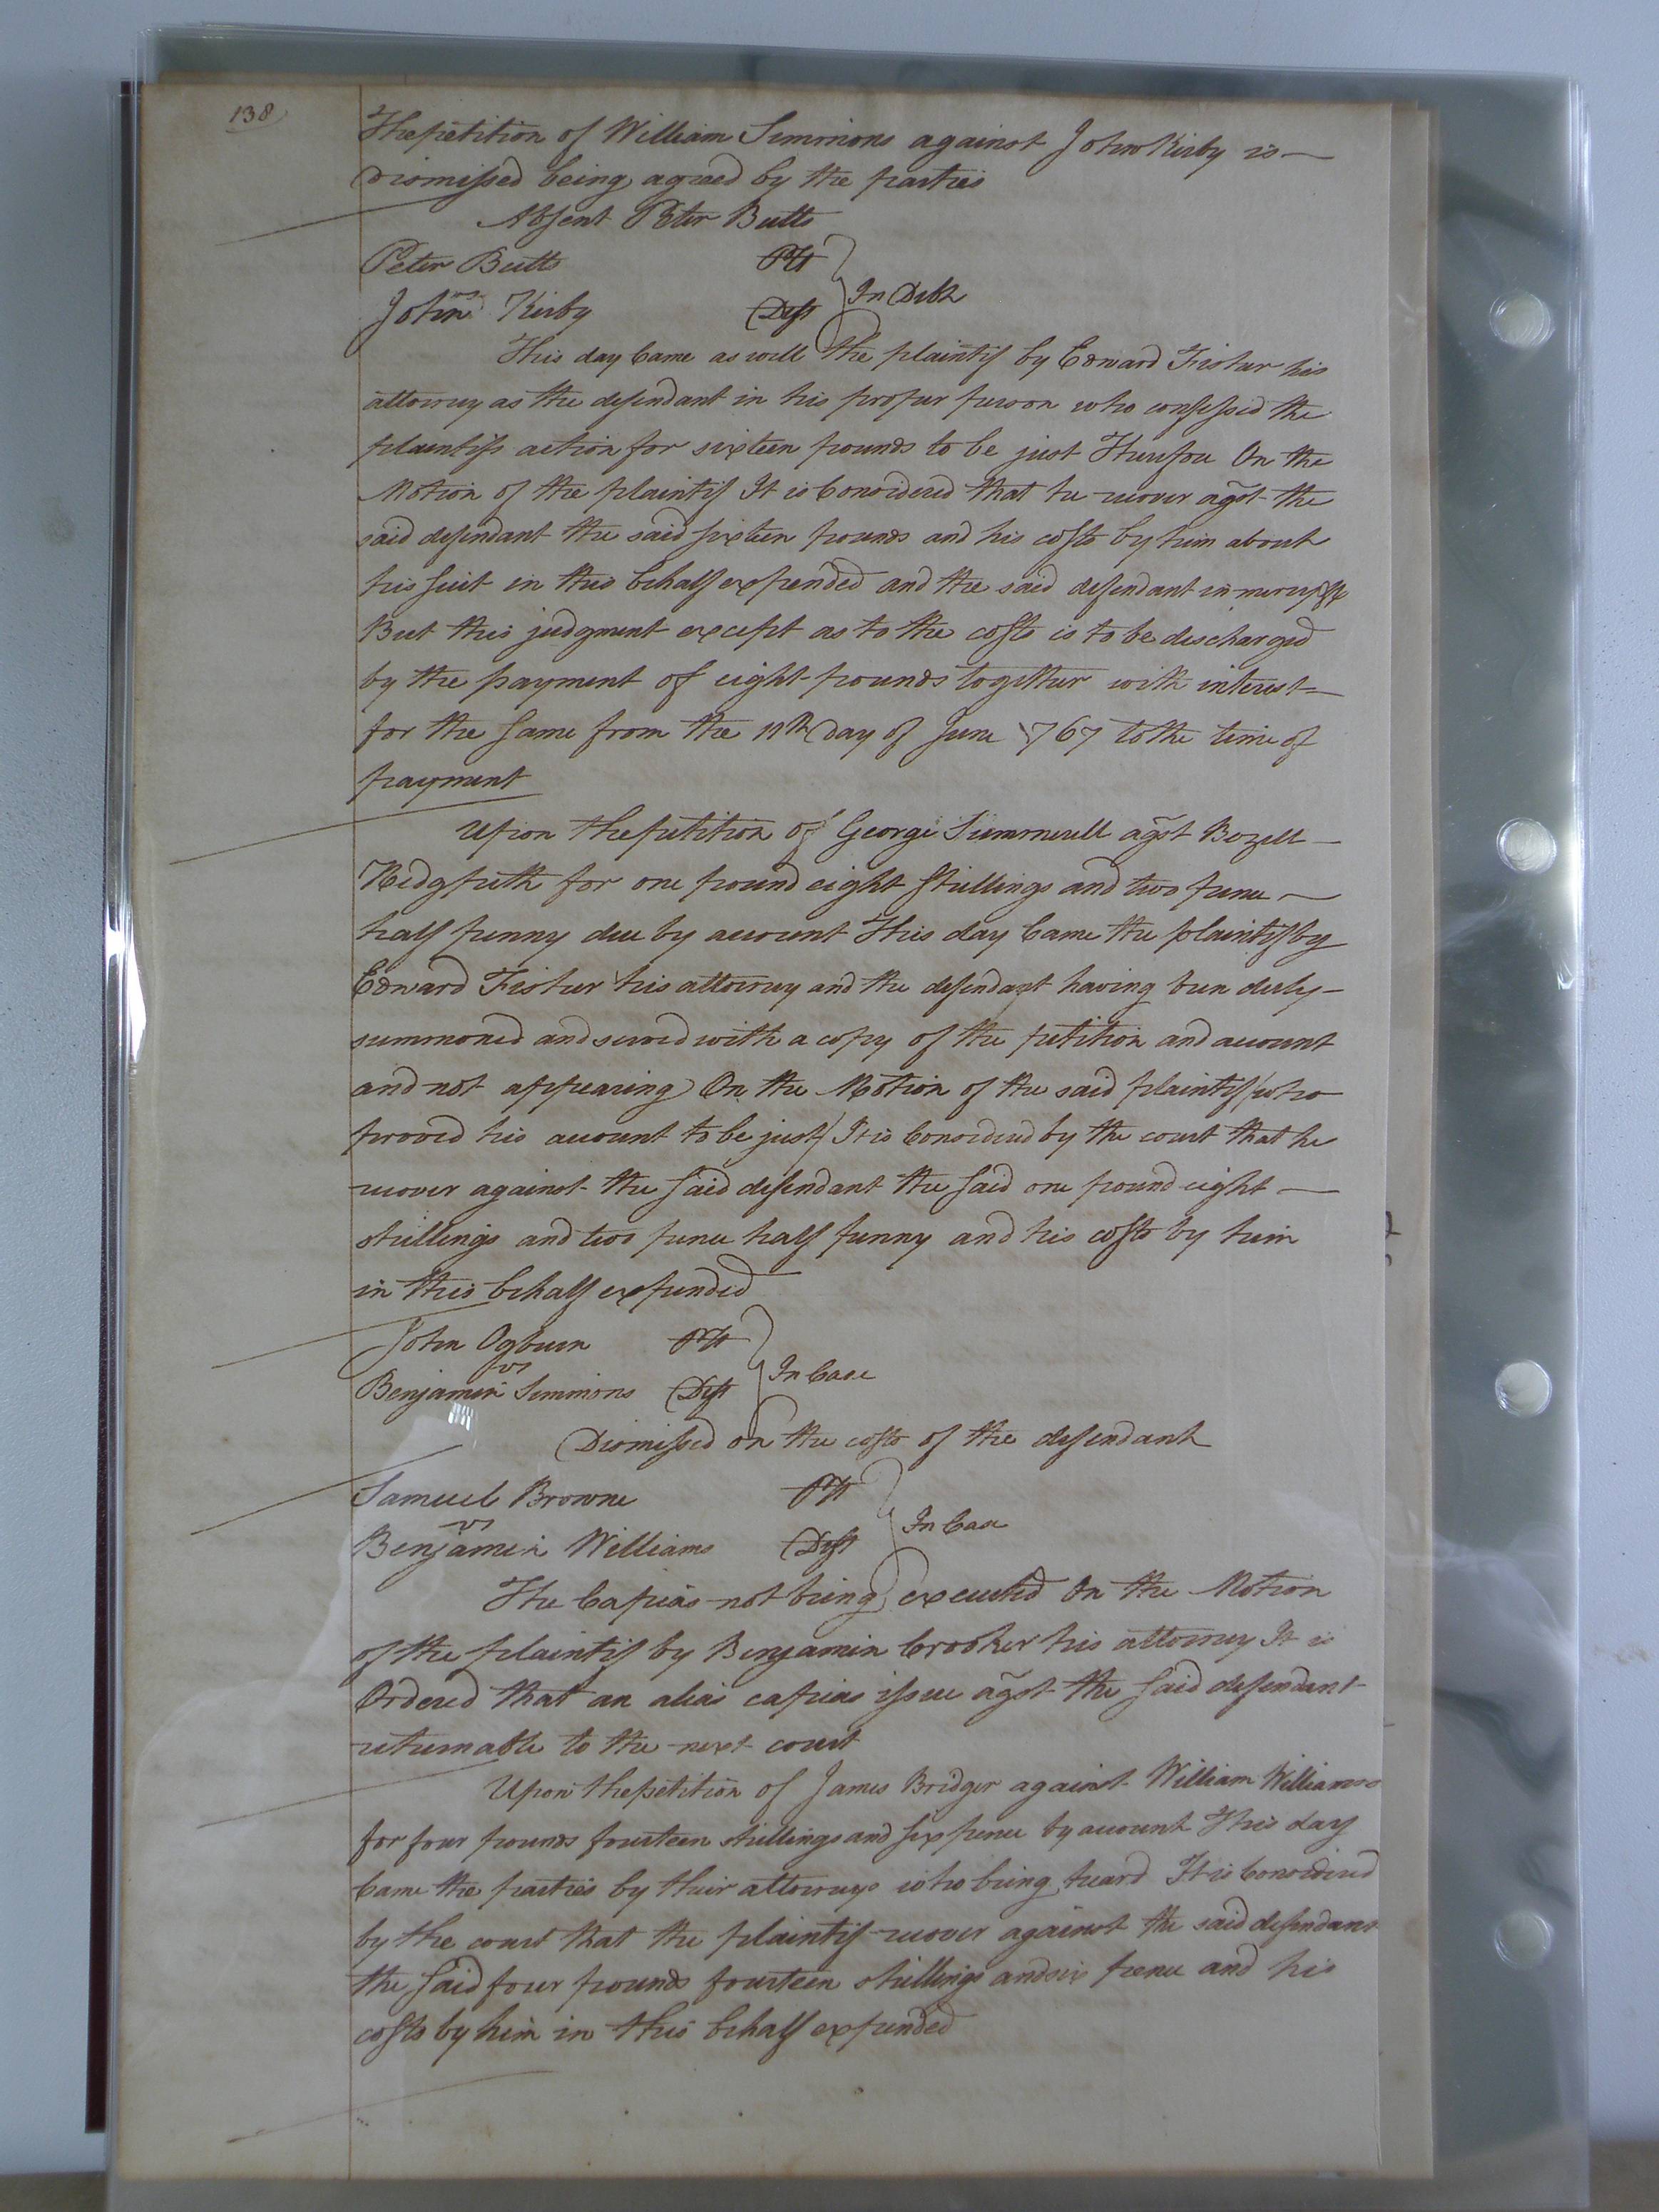 138
The petition of William Simmons against John Kirby is—
Dismissed being agreed by the parties
Absent Peter Butts
Peter Butts Plt
vs } In Debt
John Kirby Deft
This day Came as well the plaintif by Edward Fisher his
attorney as the defendant in his proper person who confessed the
plaintifs action for sixteen pounds to be just Therefore On the
Motion of the plaintif It is Considered that he recover agst the
said defendant the said sixteen pounds and his costs by him about
his suit in this behalf expended and the said defendant in mercy &c
But this judgment except as to the costs is to be discharged
by the payment of eight pounds together with interest—
for the same from the 11th Day of June 1767 to the time of
payment
Upon the petition of George Summerell agst Bozell—
Hedgpeth for one pound eight shillings and two pence—
half penny due by account This day Came the plaintif by
Edward Fisher his attorney and the defendant having been duly—
summoned and served with a copy of the petition and account
and not appearing On the Motion of the said plaintif/who
proved his account to be just/ It is Considered by the court that he
recover against the said defendant the said one pound eight—
shillings and two pence half penny and his costs by him
in this behalf expended
John Ogburn Plt
vs } In Case
Benjamin Simmons Deft
Dismissed on the costs of the defendant
Samuel Browne Plt
vs } In Case
Benjamin Williams Deft
The Capias not being executed On the Motion
of the plaintif by Benjamin Crooker his attorney It is
Ordered that an alias capias issue agst the said defendant
returnable to the next court
Upon the petition of James Bridger against William Williams
for four pounds fourteen shillings and six pence by account This day
Came the parties by their attorneys who being heard It is Considered
by the court that the plaintif recover against the said defendant
the said four pounds fourteen shillings and six pence and his
costs by him in this behalf expended